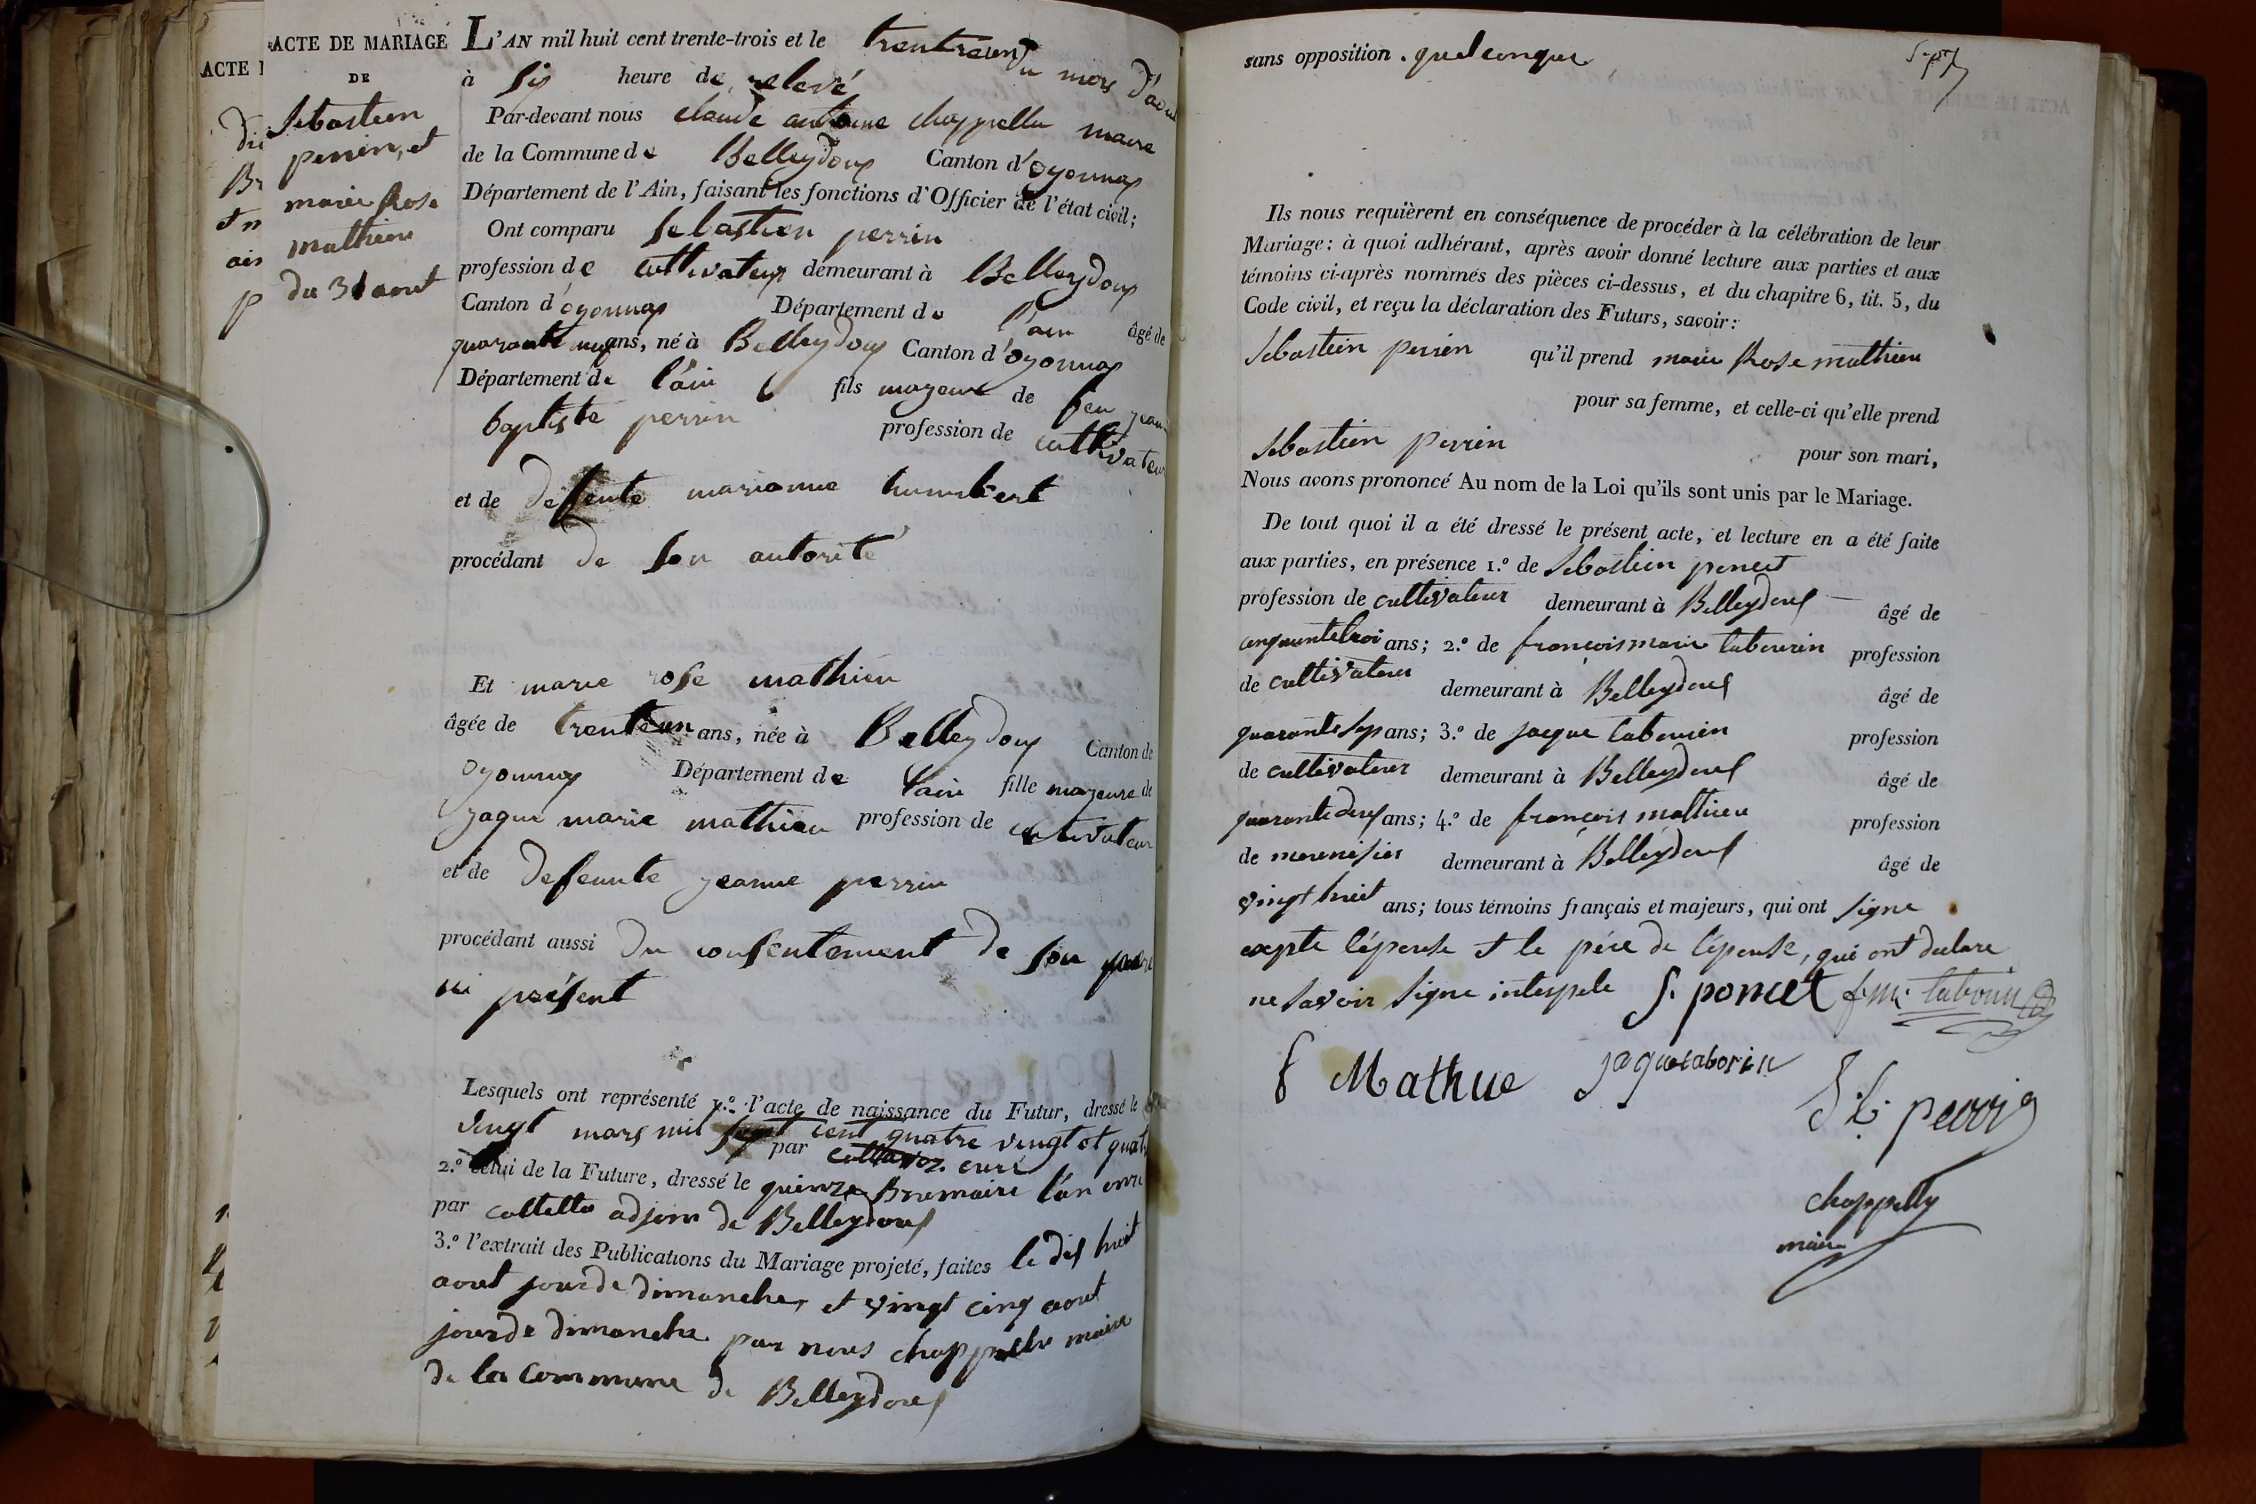 ACTE DE MARIAGE
DE
Sebastien
perrin, et
marie Rose
mathieu
du 31 aout
L'AN mil huit cent trente-trois et le trentreun du mois d'aout
à six heure de relevé
Par-devant nous claude antoine chappellu maire
de la Commune de Belleydoux Canton d'oyonnax
Département de l'Ain, faisant les fonctions d'Officier de l'état civil;
Ont comparu sebastien perrin
profession de cultivateur demeurant à Belleydoux
Canton d'oyonnax Département de l'ain âgé de
quarante ans, né à Belleydoux Canton d'oyonnax
Département de l'ain fils mageur de feu jean
baptiste perrin profession de cultivateur
et de defente marianne humbert
procédant de son autorité
Et marie rose mathieu
âgée de trenteun ans, née à Belleydoux Canton de
oyonnax Département de l'ain fille mageure de
jaque marie mathieu profession de cultivateur
et de defeunte jeanne perrin
procédant aussi du consentement de son pere
ici présent
Lesquels ont représenté 1.º l'acte de naissance du Futur, dressé le
vingt mars mil sept cent quatre vingt et quatr
par curé
2.º celui de la Future, dressé le quinze Brumaire l'an onze
par colletta adjoin de Belleydoux
3.º l'extrait des Publications du Mariage projeté, faites le dix huit
aout jour de dimanche, et vingt cinq aout
jour de dimanche par nous chappellu maire
de la commune de Belleydoux
sans opposition. quelconque
Ils nous requièrent en conséquence de procéder à la célébration de leur
Mariage: à quoi adhérant, après avoir donné lecture aux parties et aux
témoins ci-après nommés des pièces ci-dessus, et du chapitre 6, tit. 5, du
Code civil, et reçu la déclaration des Futurs, savoir:
Sebastien perrin qu'il prend marie Rose mathieu
pour sa femme, et celle-ci qu'elle prend
Sebastien perrin pour son mari,
Nous avons prononcé Au nom de la Loi qu'ils sont unis par le Mariage.
De tout quoi il a été dressé le présent acte, et lecture en a été faite
aux parties, en présence 1.º de Sebastien poncet
profession de cultivateur demeurant à Belleydoux âgé de
cinquantetroi ans; 2.º de françois marie tabourin profession
de cultivateur demeurant à Belleydoux âgé de
quarante sep ans; 3.º de jaque tabourin profession
de cultivateur demeurant à Belleydoux âgé de
quarante deux ans; 4.º de françois mathieu profession
de menuisier demeurant à Belleydoux âgé de
vingt huit ans; tous témoins français et majeurs, qui ont signe
exepte l'épouse et le pére de l'épouse, qui ont declare
ne savoir signe interpele S. poncet f m tabourin
f Mathue jaquetaborin
S. b. perrin
chappellu
maire